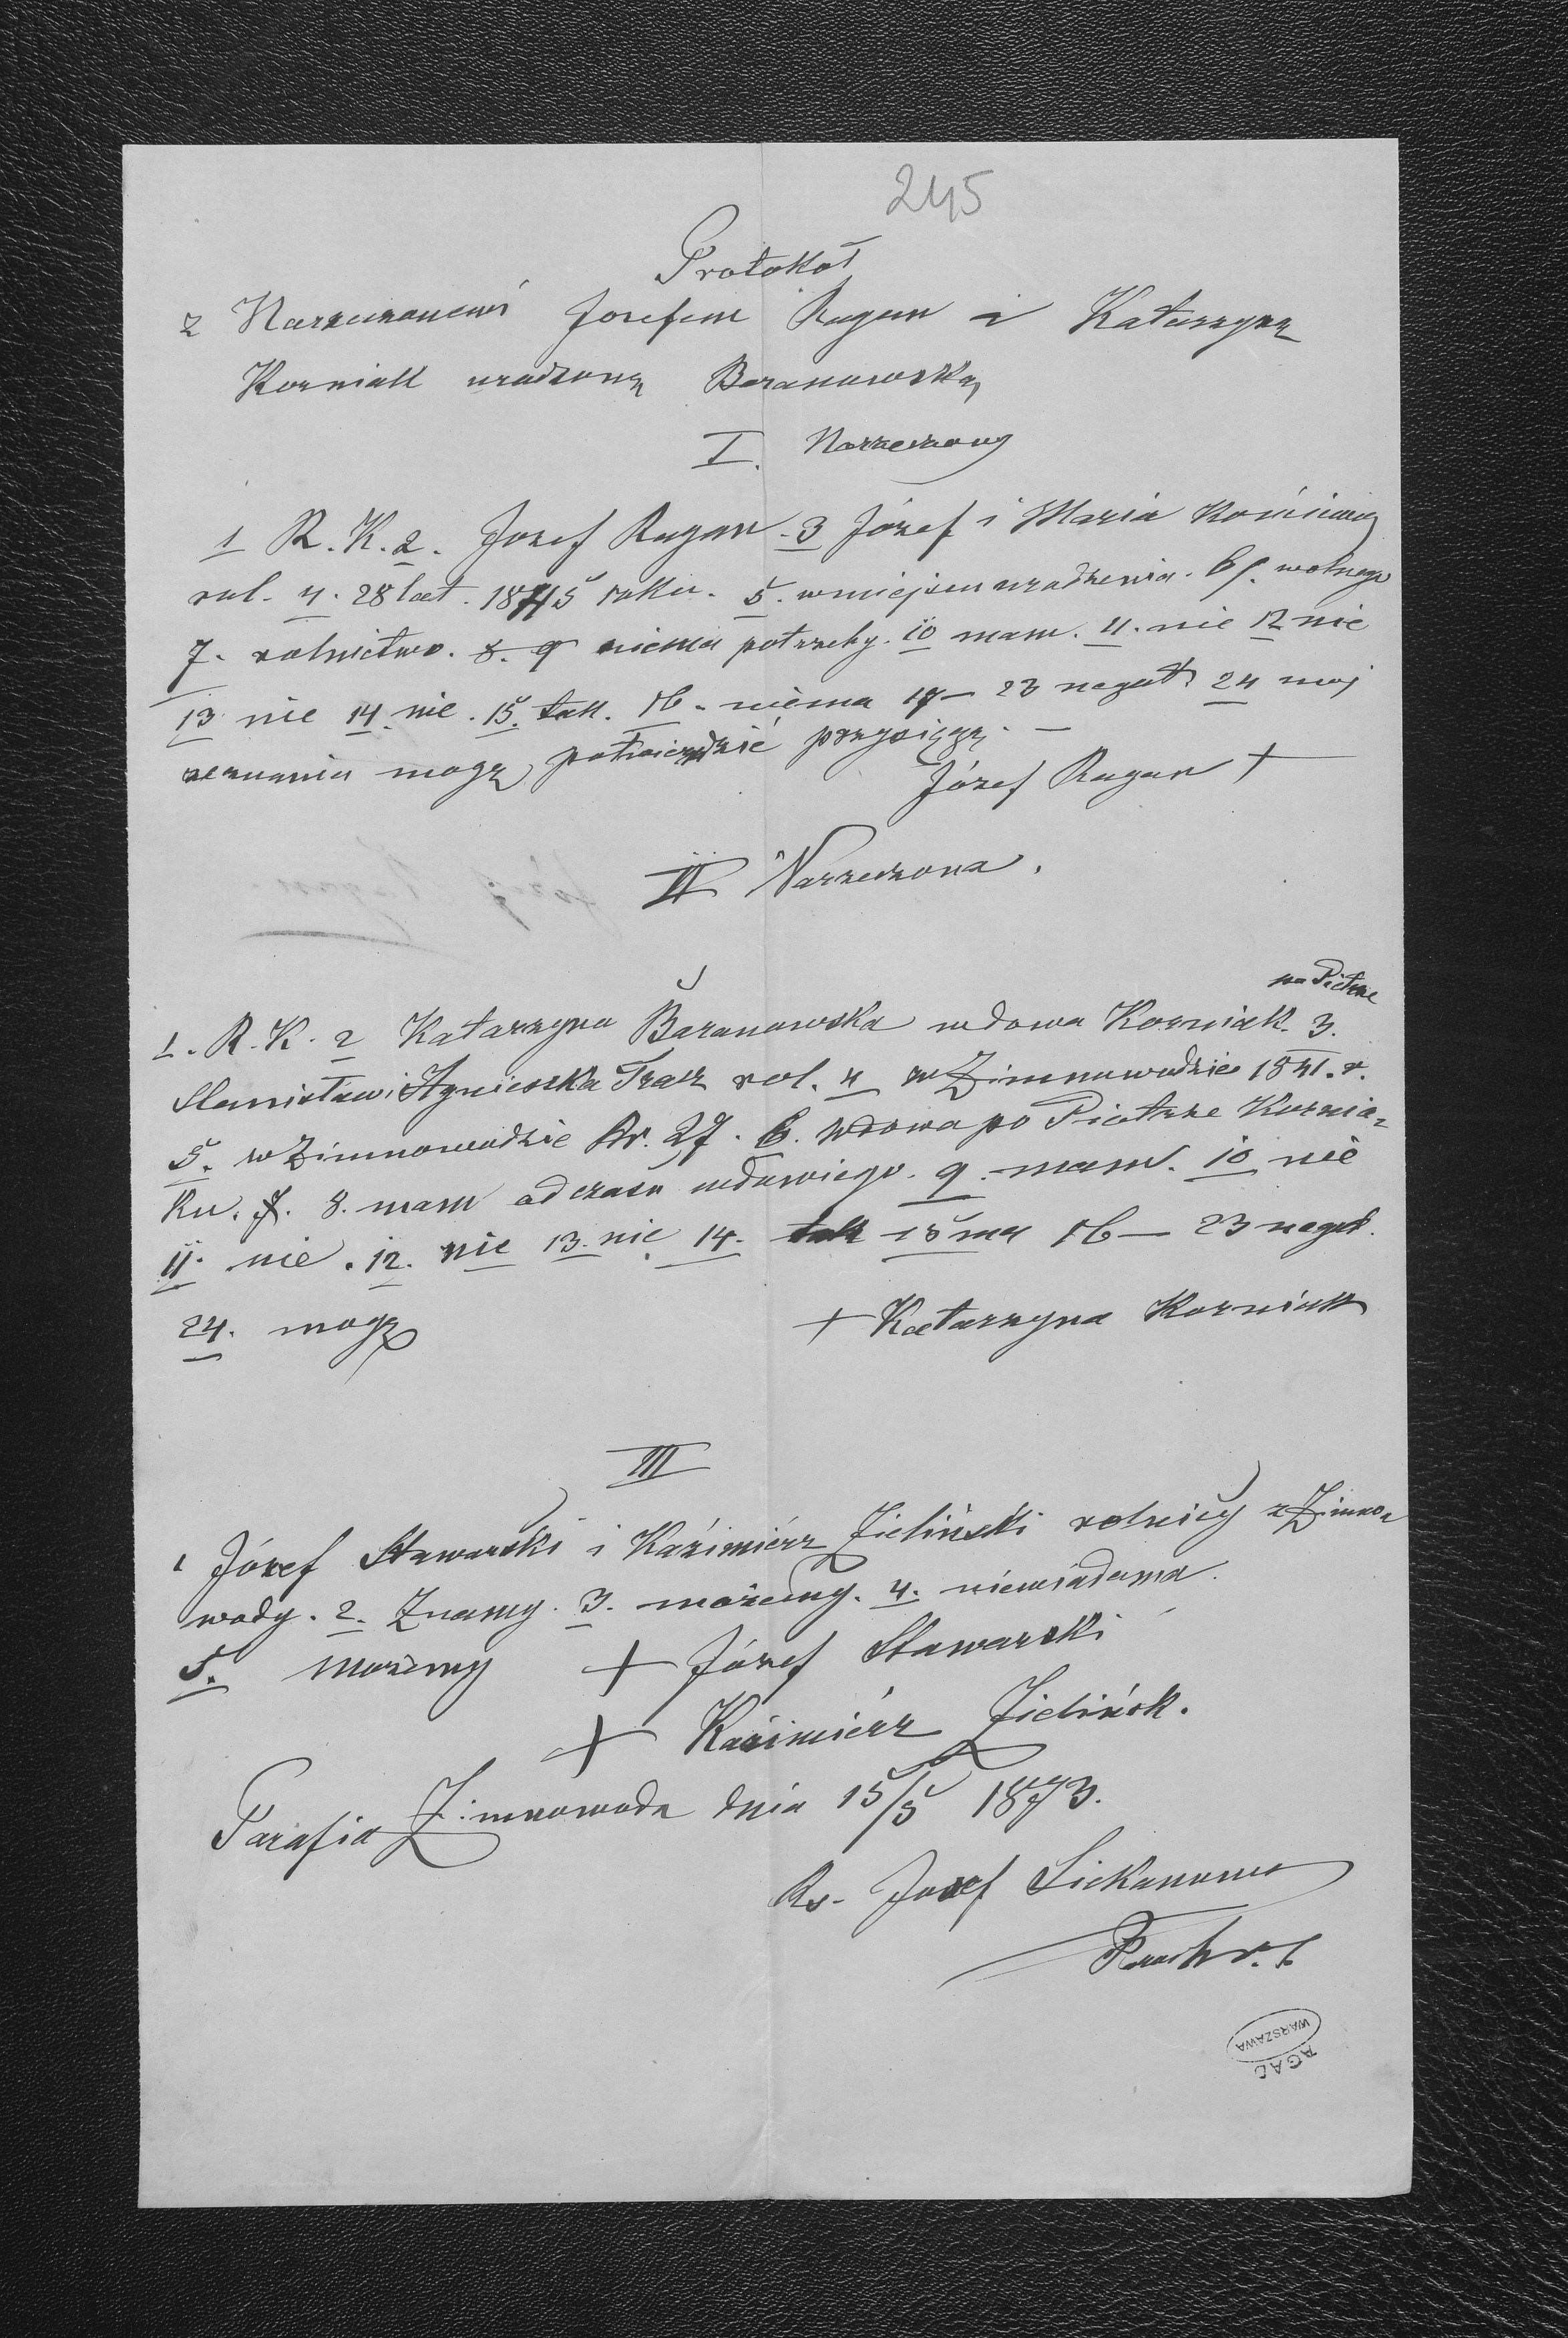 245
Protokoł
z Narzeczonemi Jozefem Ragan i Katarzyną
Korniak urodzoną Baranowską
I. Narzeczony
1 R. K. 2. Jozef Ragan. 3 Józef i Maria
rol. 4. 28 lat. 1845 roku. 5. w miejscu urodzenia. 6/. wolnego
7. rolnictwo. 8. 9 niema potrzeby. 10 mam. 11. nie 12 nie
13 nie 14. nie. 15. tak. 16. niema 17 — 23 negat. 24 moj
zeznania mogę potwierdzić przysięgą. —
Józef Ragan +
II Narzeczona.
po Piotrze
1. R. K. 2 Katarzyna Baranowska wdowa Korniak. 3.
Stanisław i Agnieszka rol. 4 w Zimnowodzie 1841. r.
5. w Zimnowodzie Nr. 27. 6. wdowa po Piotrze Kornia-
ku. 7. 8. mam od czasu wdowiego. 9. mam. 10 nie
11. nie. 12. nie 13. nie. 14. tak 15 ma 16 — 23 negat.
24. mogę + Katarzyna Korniak
III
1 Józef Stawarski i Kázimiérz Zieliński rolnicy z Zimno-
wody. 2. Znamy. 3. możemy. 4. niewiadoma.
5. możemy + Józef Stawarski
+ Kaźimiérz Zielińsk.
Parafia Zimnowoda dnia 15/5 1873.
Ks. Jozef
AGAD
WARSZAWA